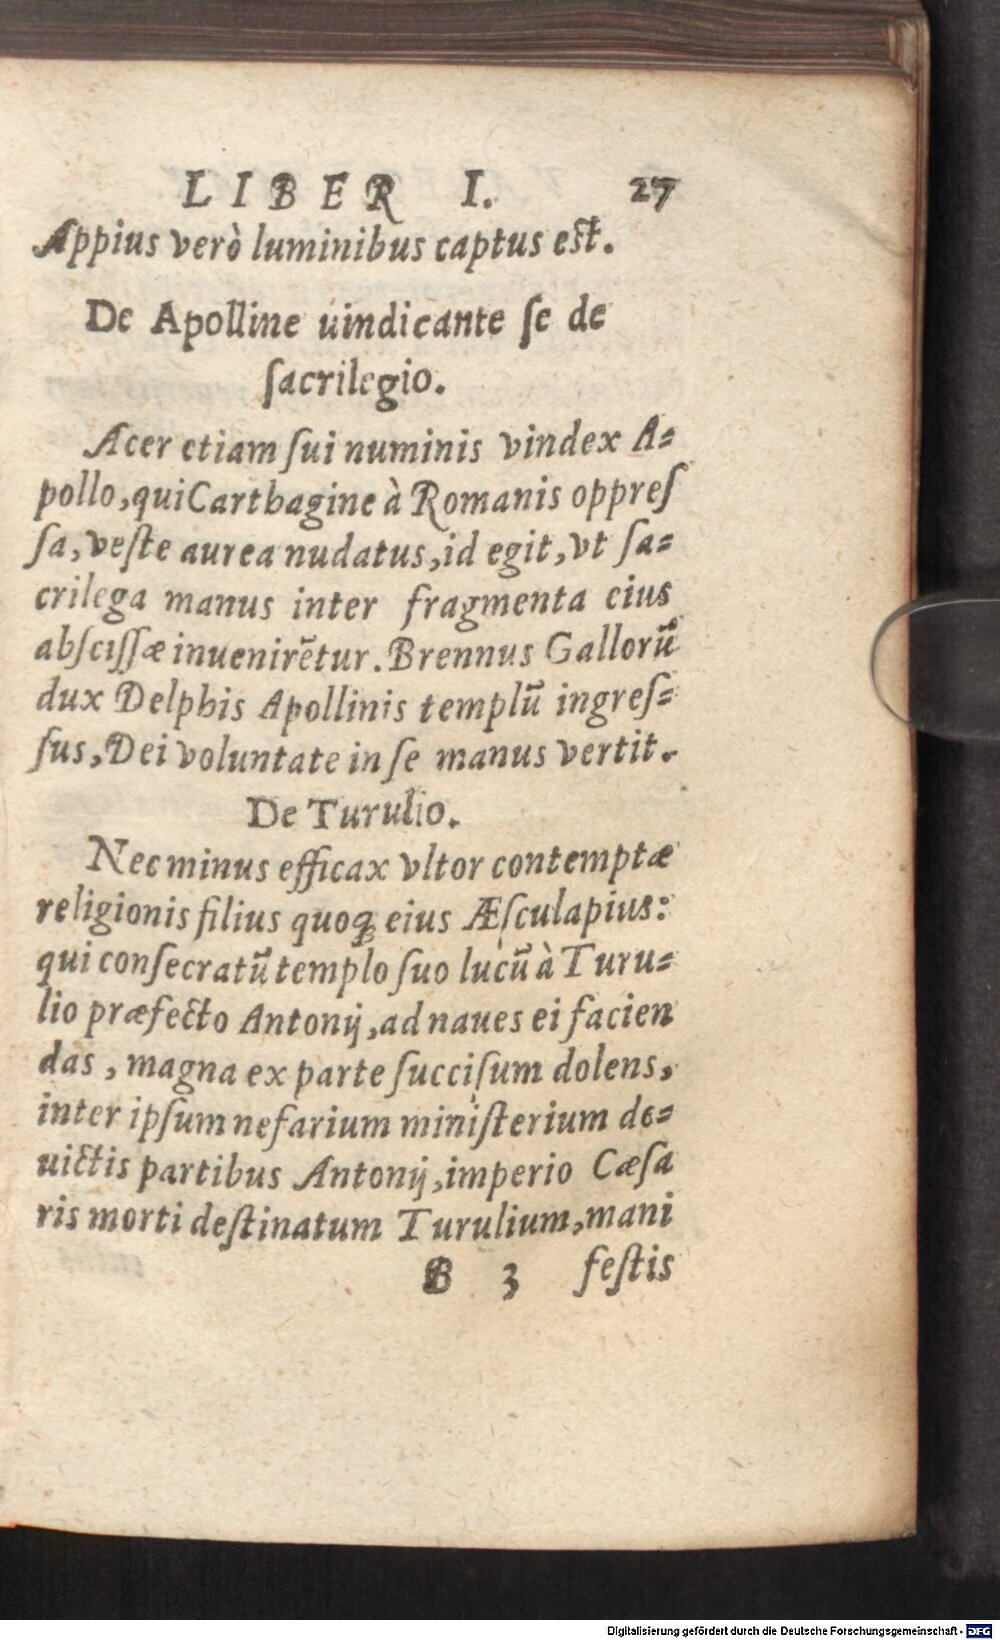 LIBER I. 27
Appius verò luminibus captus est.
De Apolline uindicante ſe de
ſacrilegio.
Acer etiam ſui numinis vindex A-
pollo, qui Carthagine à Romanis oppreſ
ſa, veſte aurea nudatus, id egit, vt ſa-
crilega manus inter fragmenta eius
abſciſſæ inuenirẽtur. Brennus Gallorũ
dux Delphis Apollinis templũ ingreſ-
ſus, Dei voluntate in ſe manus vertit.
De Turulio.
Nec minus efficax vltor contemptæ
religionis filius quoq; eius Æſculapius:
qui conſecratũ templo ſuo lucũ à Turu-
lio præfecto Antonij, ad naues ei facien
das, magna ex parte ſucciſum dolens,
inter ipſum nefarium miniſterium de-
uictis partibus Antonij, imperio Cæſa
ris morti deſtinatum Turulium, mani
B 3 feſtis
Digitalisierung gefördert durch die Deutsche Forschungsgemeinschaft - DFG